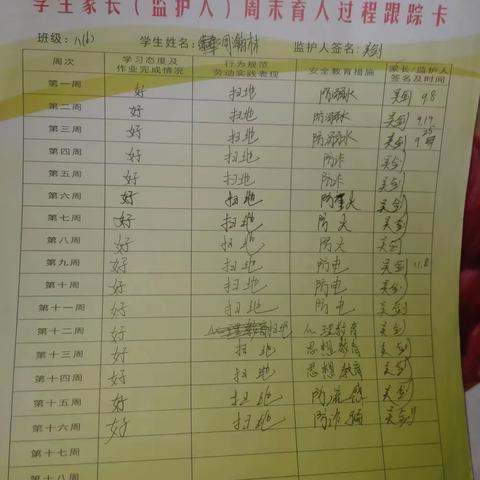 学生家长（监护人）周末育人过程跟踪卡
班级：八(6) 学生姓名：周翰林 监护人签名：吴剑
周次 学习态度及作业完成情况 行为规范劳动实践表现 安全教育措施 家长/监护人签名及时间
第一周 好 扫地 防溺水 吴剑 9.8
第二周 好 扫地 防溺水 吴剑 9.19
第三周 好 扫地 防溺水 吴剑 9.25
第四周 好 扫地 防诈 吴剑
第五周 好 扫地 防诈 吴剑
第六周 好 扫地 防火 吴剑
第七周 好 扫地 防火 吴剑
第八周 好 扫地 防火 吴剑
第九周 好 扫地 防电 吴剑 11.8
第十周 好 扫地 防电 吴剑
第十一周 好 扫地 防电 吴剑
第十二周 好 扫地 心理教育 吴剑
第十三周 好 扫地 思想教育 吴剑
第十四周 好 扫地 思想教育 吴剑
第十五周 好 扫地 防流感 吴剑
第十六周 好 扫地 防诈骗 吴剑
第十七周
第十八周